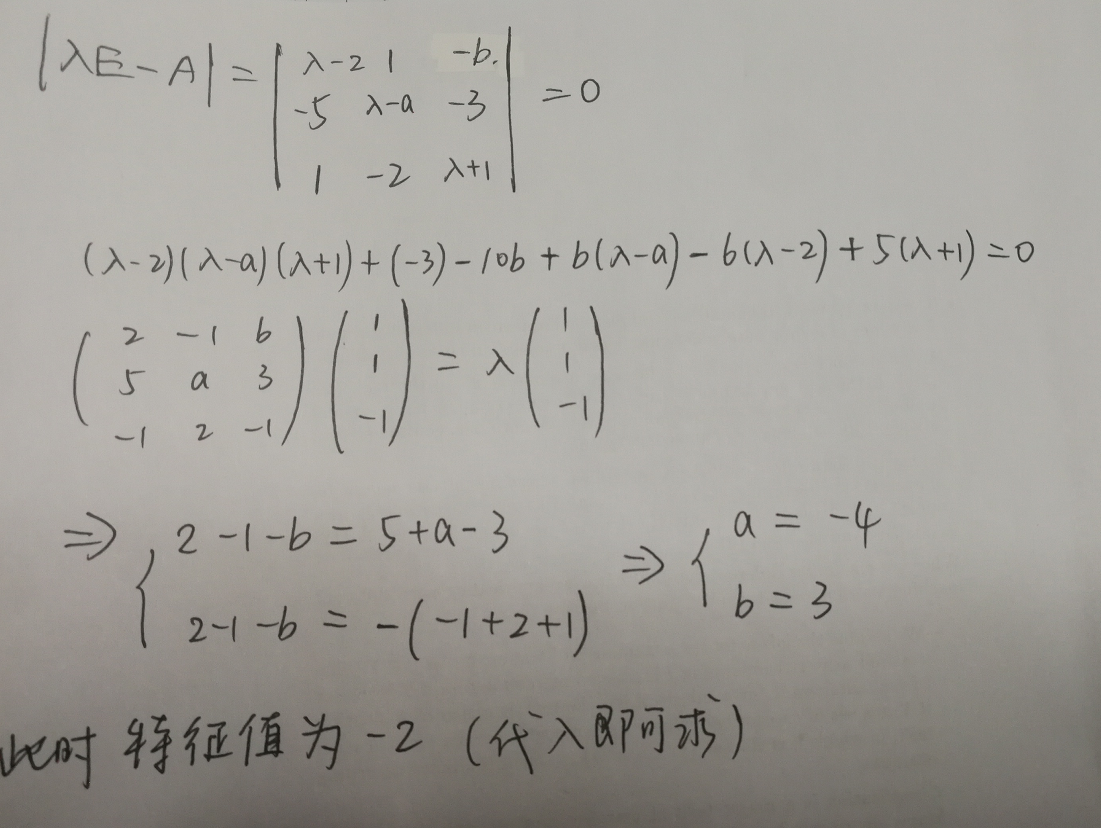 |λE-A| = | λ-2 1 -b. | = 0
| -5 λ-a -3 |
| 1 -2 λ+1 |
(λ-2)(λ-a)(λ+1)+(-3)-10b+b(λ-a)-6(λ-2)+5(λ+1)=0
( 2 -1 b ) ( 1 ) = λ ( 1 )
( 5 a 3 ) ( 1 ) ( 1 )
( -1 2 -1 ) ( -1 ) ( -1 )
⇒ { 2-1-b = 5+a-3 ⇒ { a = -4
2-1-b = -(-1+2+1) b = 3
此时 特征值为 -2 (代入即可求)